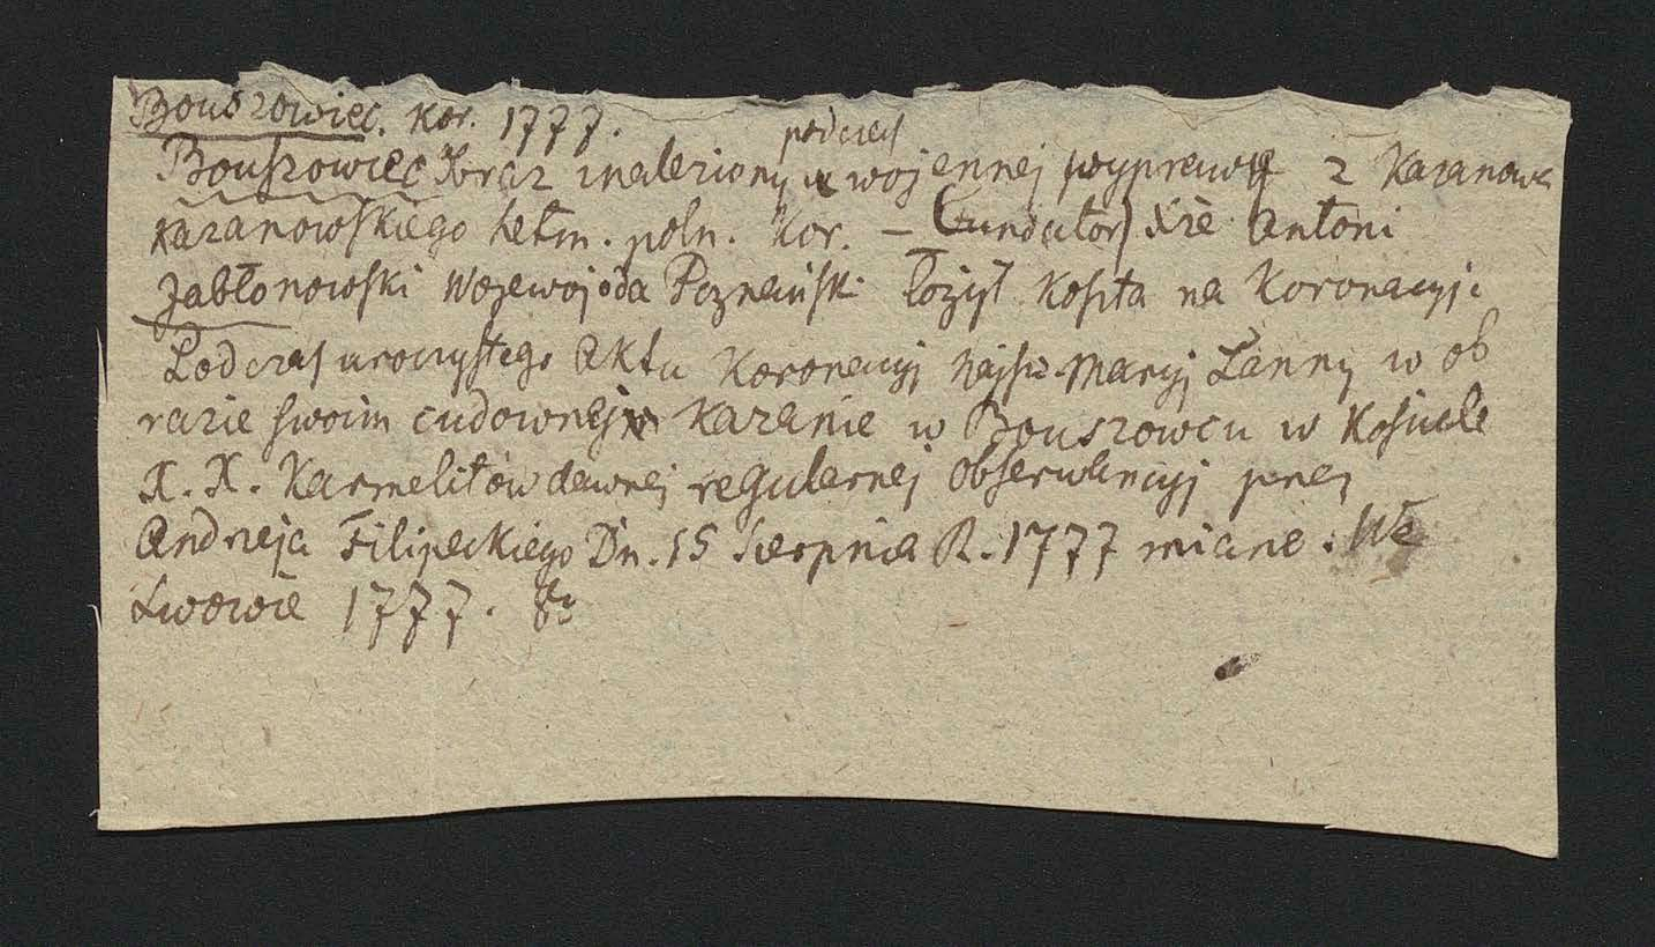 Bouszowiec. Kor. 1777.
podczas
Bouszowiec Obraz znaleziony w wojennej wyprawy z Kazanowa
Kazanowskiego hetm. poln. Kor. – Fundator Xże Antoni
Jabłonowski Wojewojoda Poznański łożył koszta na Koronacyji
Podczas uroczystego Aktu Koronacyj Najśw. Maryj Panny w ob
razie swoim cudownej Kazanie w Bouszowcu w Kościele
X. X. Karmelitów dawnej regularnej obserwancyj przez
Andrzeja Filipeckiego Dn. 15 Sierpnia R. 1777 miane. We
Lwowie 1777. 8º